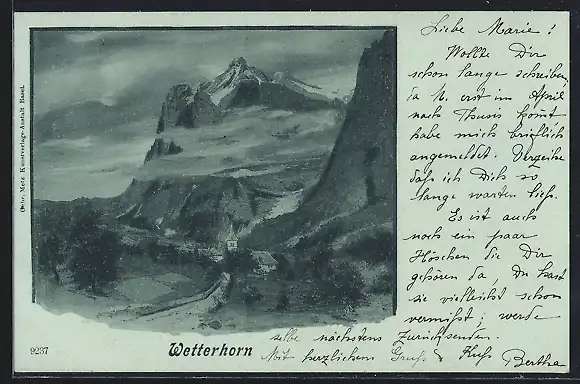 Liebe Marie!
Wollte Dir
schon lange schreiben,
da M. erst im April
nach Thusis komt
habe mich brieflich
angemeldet. Verzeihe
daß ich Dich so
lange warten ließ.
Es ist auch
noch ein paar
Höschen die Dir
gehören da, Du hast
sie vielleicht schon
vermißt; werde
selbe nächstens zurücksenden.
Mit herzlichem Gruß & Kuß Bertha
Gebr. Metz Kunstverlags-Anstalt Basel.
9237
Wetterhorn